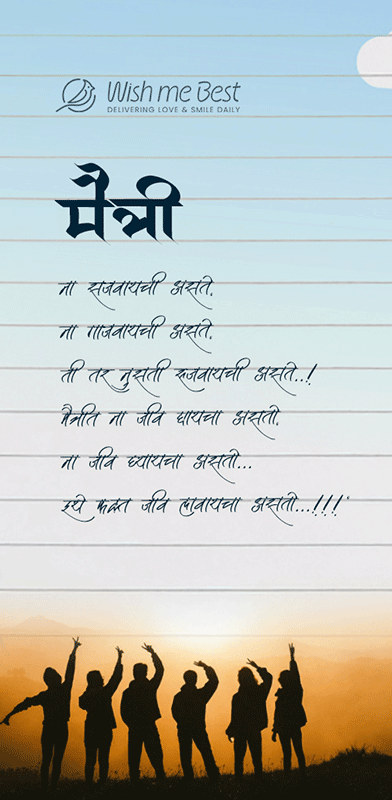 Wish me Best
DELIVERING LOVE & SMILE DAILY
मैत्री
ना सजवायची असते.
ना गाजवायची असते.
ती तर नुसती रुजवायची असते..!
मैत्रीत ना जीव द्यायचा असतो.
ना जीव घ्यायचा असतो...
इथे फक्त जीव लावायचा असतो...!!!'